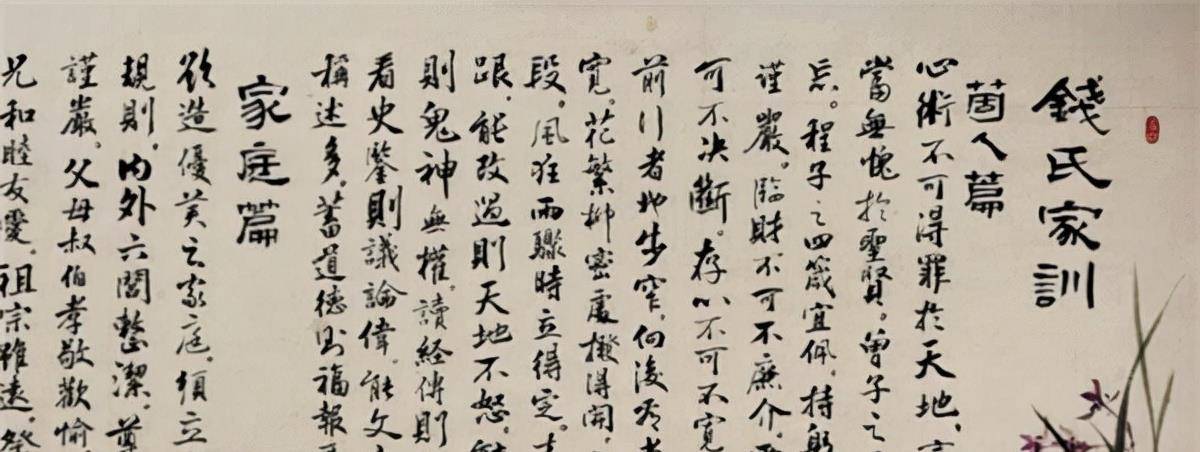 錢氏家訓
箇人篇
心術不可得罪於天地，言
當無愧於聖賢。曾子之
忘。程子之四箴宜佩。持躬
謹嚴。臨財不可不廉介。
可不决斷。存心不可不寬
前行者地步窄，向後看者
寬。花繁柳密處撥得開，
段。風狂雨驟時立得定。
跟，能改過則天地不怒，
則鬼神無權。讀經傳則
看史鑒則議論偉。能文
稱述多。蓄道德則福報
家庭篇
欲造優美之家庭，須立
規則。内外六閭整潔，尊
謹嚴。父母叔伯孝敬歡愉
兄和睦友愛。祖宗雖遠，祭